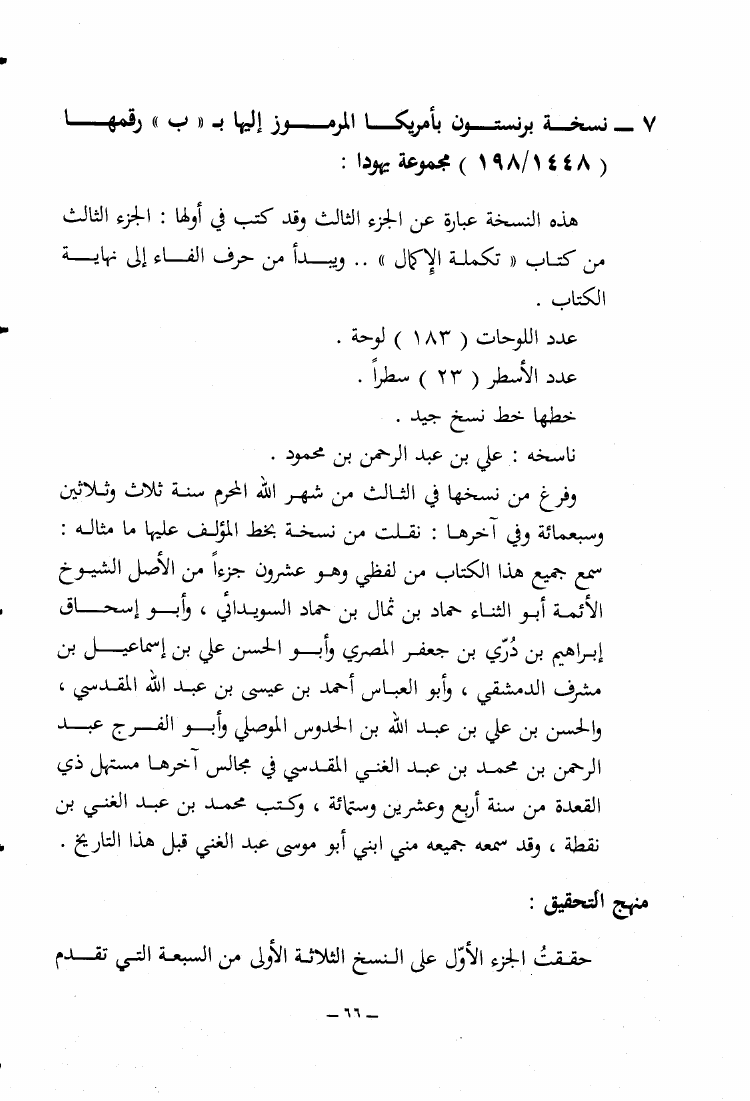 ٧ ــ نسخة برنستون بأمريكا المرموز إليها بـ « ب » رقمها
( ١٩٨/١٤٤٨ ) مجموعة يهودا :
هذه النسخة عبارة عن الجزء الثالث وقد كتب في أولها : الجزء الثالث
من كتاب « تكملة الإكمال » .. ويبدأ من حرف الفاء إلى نهاية
الكتاب .
عدد اللوحات ( ١٨٣ ) لوحة .
عدد الأسطر ( ٢٣ ) سطراً .
خطها خط نسخ جيد .
ناسخه : علي بن عبد الرحمن بن محمود .
وفرغ من نسخها في الثالث من شهر الله المحرم سنة ثلاث وثلاثين
وسبعمائة وفي آخرها : نقلت من نسخة بخط المؤلف عليها ما مثاله :
سمع جميع هذا الكتاب من لفظي وهو عشرون جزءاً من الأصل الشيوخ
الأئمة أبو الثناء حماد بن ثمال بن حماد السويدائي ، وأبو إسحاق
إبراهيم بن دُرّي بن جعفر المصري وأبو الحسن علي بن إسماعيل بن
مشرف الدمشقي ، وأبو العباس أحمد بن عيسى بن عبد الله المقدسي ،
والحسن بن علي بن عبد الله بن الحدوس الموصلي وأبو الفرج عبد
الرحمن بن محمد بن عبد الغني المقدسي في مجالس آخرها مستهل ذي
القعدة من سنة أربع وعشرين وستمائة ، وكتب محمد بن عبد الغني بن
نقطة ، وقد سمعه جميعه مني ابني أبو موسى عبد الغني قبل هذا التاريخ .
منهج التحقيق :
حققتُ الجزء الأوّل على النسخ الثلاثة الأولى من السبعة التي تقدم
ــ ٦٦ ــ